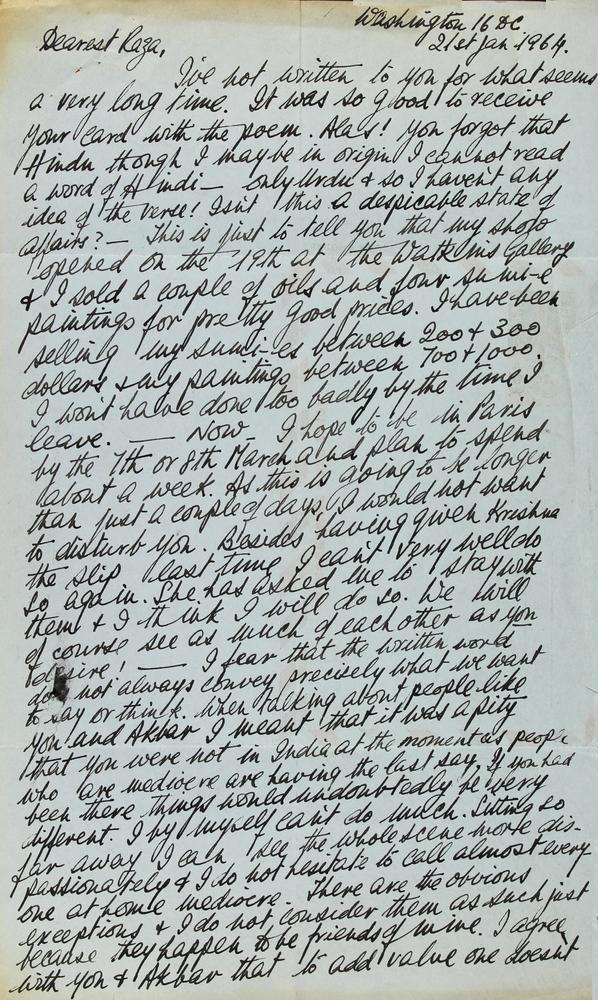 Washington 16 DC
21st Jan 1964.
Dearest Raza,
I've not written to you for what seems
a very long time. It was so good to receive
your card with the poem. Alas! you forgot that
Hindu though I maybe in origin I cannot read
a word of Hindi — only Urdu & so I haven't any
idea of the verse! Isn't this a despicable state of
affairs? — This is just to tell you that my show
opened on the 19th at the Watkins Gallery
& I sold a couple of oils and four sumi-e
paintings for pretty good prices. I have been
selling my sumi-es between 200 & 300
dollars & my paintings between 700 & 1000.
I won't have done too badly by the time I
leave. — Now I hope to be in Paris
by the 7th or 8th March and plan to spend
about a week. As this is going to be longer
than just a couple of days, I would not want
to disturb you. Besides having given Krishna
the slip last time I can't very well do
so again. She has asked me to stay with
them & I think I will do so. We will
of course see as much of each other as you
desire! — I fear that the written world
do not always convey precisely what we want
to say or think. When talking about people like
you and Akbar I meant that it was a pity
that you were not in India at the moment as people
who are mediocre are having the last say. If you had
been there things would undoubtedly be very
different. I by myself can't do much. Sitting so
far away I can see the whole scene more dis-
passionately & I do not hesitate to call almost every
one at home mediocre. There are the obvious
exceptions & I do not consider them as such just
because they happen to be friends of mine. I agree
with you & Akbar that to add value one doesn't